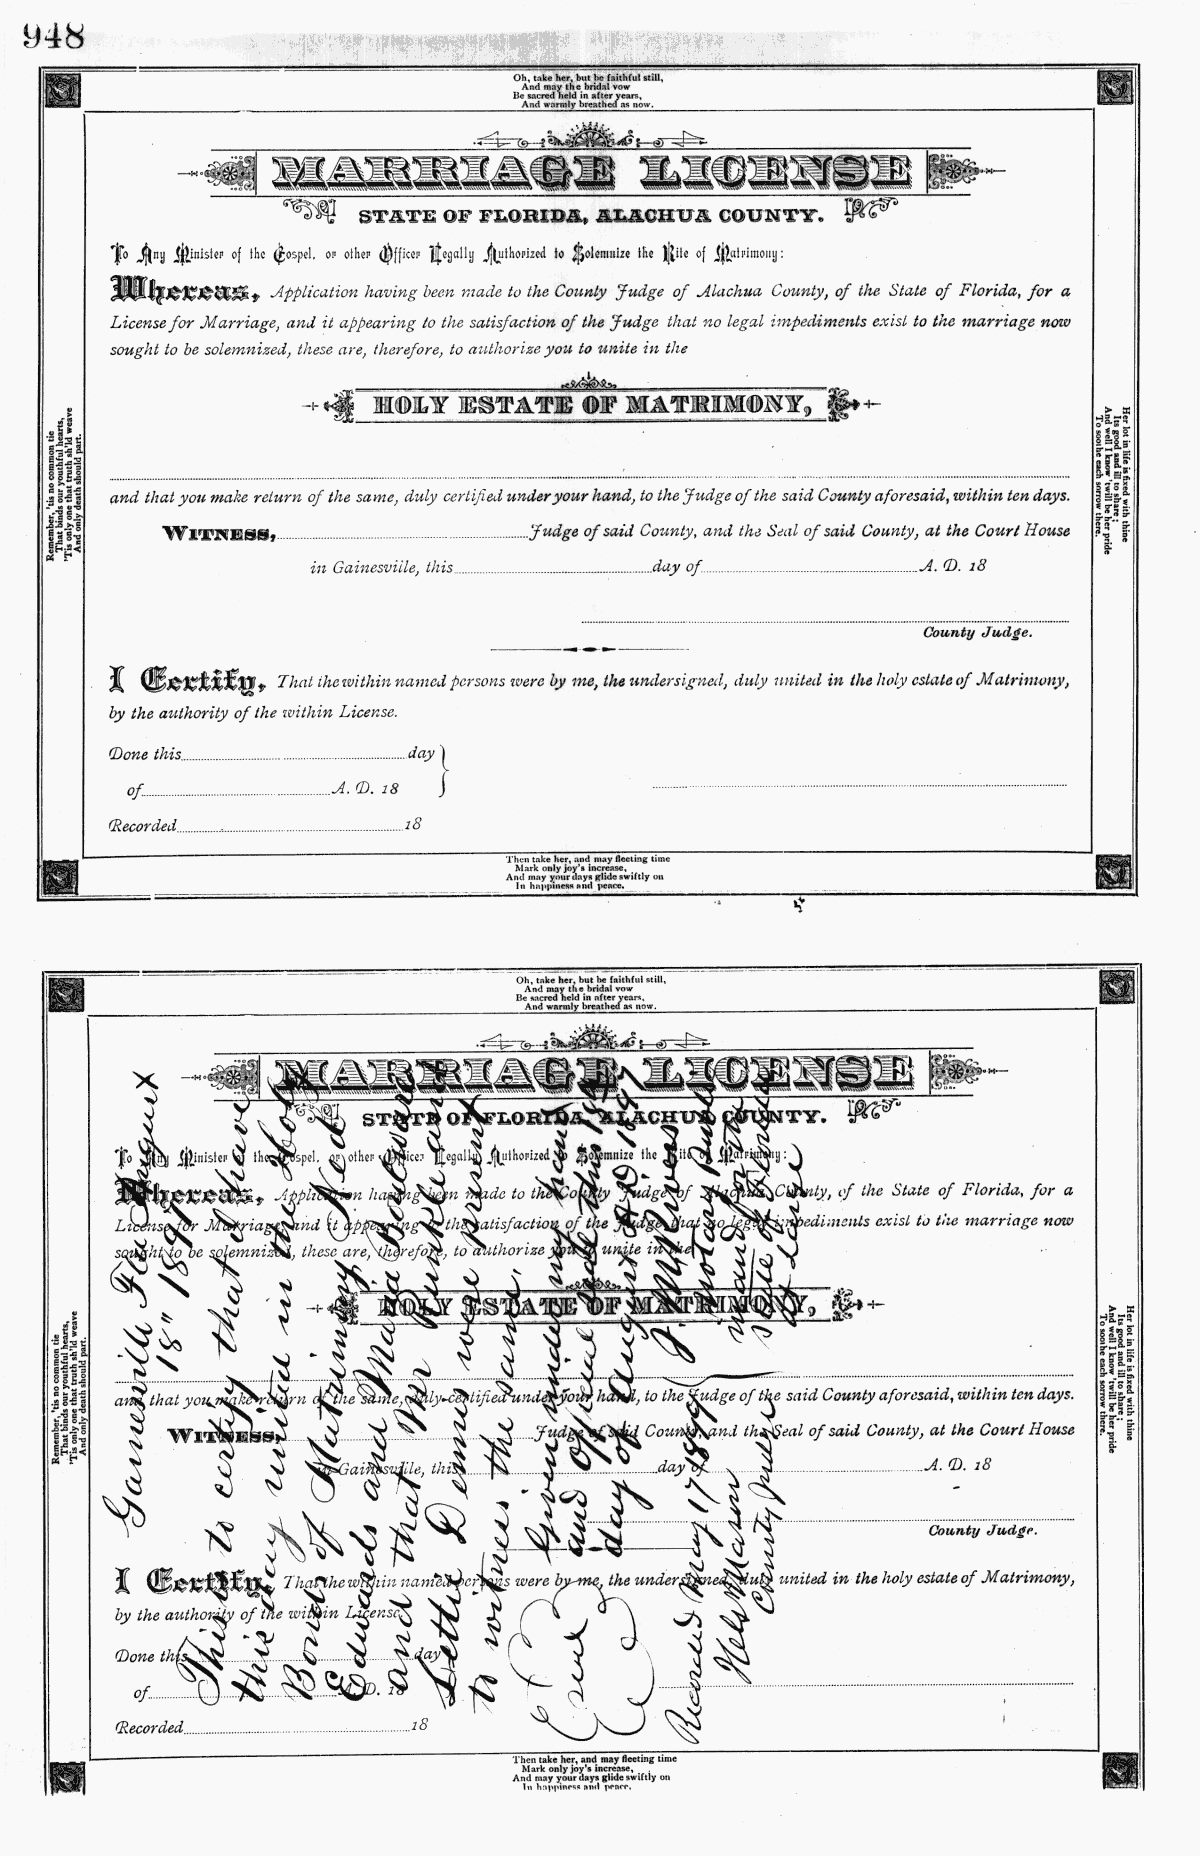 948
Oh, take her, but be faithful still,
And may the bridal vow
Be sacred held in after years,
And warmly breathed as now.
MARRIAGE LICENSE
STATE OF FLORIDA, ALACHUA COUNTY.
To Any Minister of the Gospel, or other Officer Legally Authorized to Solemnize the Rite of Matrimony:
Whereas, Application having been made to the County Judge of Alachua County, of the State of Florida, for a
License for Marriage, and it appearing to the satisfaction of the Judge that no legal impediments exist to the marriage now
sought to be solemnized, these are, therefore, to authorize you to unite in the
HOLY ESTATE OF MATRIMONY,
and that you make return of the same, duly certified under your hand, to the Judge of the said County aforesaid, within ten days.
WITNESS, Judge of said County, and the Seal of said County, at the Court House
in Gainesville, this day of A. D. 18
County Judge.
I Certify, That the within named persons were by me, the undersigned, duly united in the holy estate of Matrimony,
by the authority of the within License.
Done this day
of A. D. 18
Recorded 18
Remember, 'tis no common tie
That binds our youthful hearts,
'Tis only one that truth sh'ld weave
And only death should part.
Her lot in life is fixed with thine
Its good and ill to share;
And well I know 'twill be her pride
To soothe each sorrow there.
Then take her, and may fleeting time
Mark only joy's increase,
And may your days glide swiftly on
In happiness and peace.
Oh, take her, but be faithful still,
And may the bridal vow
Be sacred held in after years,
And warmly breathed as now.
MARRIAGE LICENSE
STATE OF FLORIDA, ALACHUA COUNTY.
To Any Minister of the Gospel, or other Officer Legally Authorized to Solemnize the Rite of Matrimony:
Whereas, Application having been made to the County Judge of Alachua County, of the State of Florida, for a
License for Marriage, and it appearing to the satisfaction of the Judge that no legal impediments exist to the marriage now
sought to be solemnized, these are, therefore, to authorize you to unite in the
HOLY ESTATE OF MATRIMONY,
and that you make return of the same, duly certified under your hand, to the Judge of the said County aforesaid, within ten days.
WITNESS, Judge of said County, and the Seal of said County, at the Court House
in Gainesville, this day of A. D. 18
County Judge.
I Certify, That the within named persons were by me, the undersigned, duly united in the holy estate of Matrimony,
by the authority of the within License.
Done this day
of A. D. 18
Recorded 18
Remember, 'tis no common tie
That binds our youthful hearts,
'Tis only one that truth sh'ld weave
And only death should part.
Her lot in life is fixed with thine
Its good and ill to share;
And well I know 'twill be her pride
To soothe each sorrow there.
Then take her, and may fleeting time
Mark only joy's increase,
And may your days glide swiftly on
In happiness and peace.
Gainesville Fla August
18" 189
This is to certify that I have
this day united in the Holy
Bonds of Matrimony Ned
Edwards and Maria
and that Wm
Lettie Dennis were present
to witness the same.
Given under my hand
and Official seal this 18
day of August A D 1897
J. M. Rivers
Notary Public
State of Florida
at Large
Seal
Recorded May 17 189
H Mason
County Judge